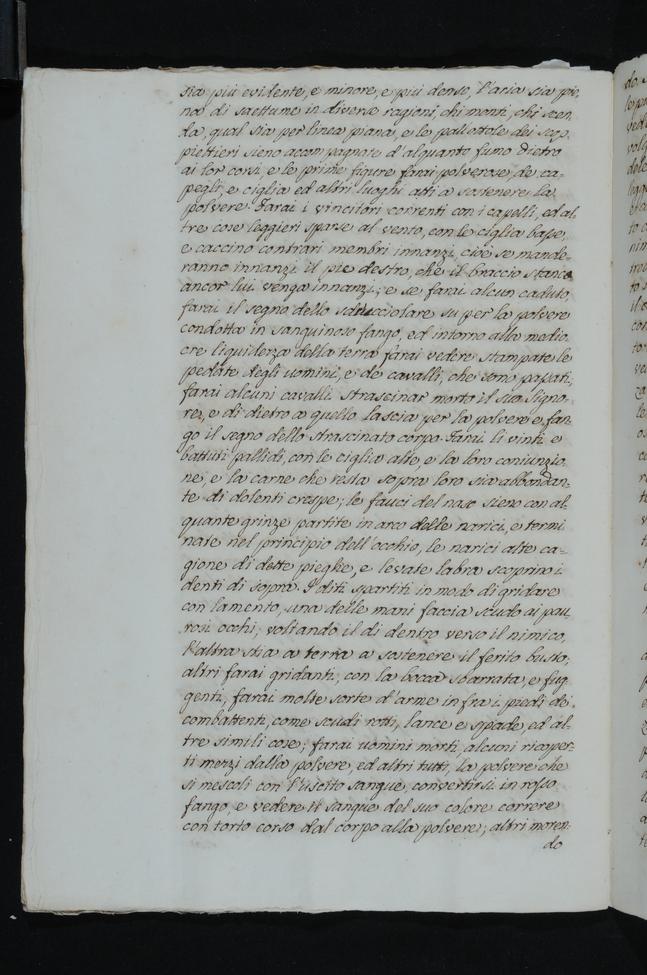 sia più evidente, e minore, e più dense, l'aria sia pie-
na di saettume in diverse ragioni, chi monti, chi scen-
da, qual sia per linea piana, e le pallottole dei scop-
piettieri sieno acompagnate d'alquanto fumo dietro
ai lor corsi, e le prime figure farai polverose de ca-
pegli, e ciglia ed altri luoghi atti a sostenere la
polvere. Farai i vincitori correnti con i capelli, ed al-
tre cose leggieri sparse al vento, con le ciglia basse,
e caccino contrari membri innanzi, cioè se mande-
ranno innanzi il piè destro, che il braccio stanco
ancor lui venga innanzi; e se farai alcun caduto,
farai il segno dello sdrucciolare su per la polvere
condotta in sanguinoso fango, ed intorno alla medio-
cre liquidezza della terra farai vedere stampate le
pedate degli uomini, e de cavalli, che sono passati;
farai alcuni cavalli strascinar morto il suo signo-
re, e di dietro a quello lascia per la polvere e fan-
go il segno dello strascinato corpo. Farai li vinti e
battuti pallidi, con le ciglia alte, e la loro coniunzio-
ne, e la carne che resta sopra loro sia abbondan-
te di dolenti crespe; le fauci del naso sieno con al-
quante grinze partite in arco dalle narici, e termi-
nate nel principio dell'occhio, le narici alte ca-
gione di deste pieghe, e levate labra scoprino i
denti di sopra. I diti spartiti in modo di gridare
con lamento, una delle mani faccia scudo ai pau-
rosi occhi, voltando il di dentro verso il nimico,
l'altra stia a terra a sostenere il ferito busto;
altri farai gridanti, con la bocca sbarrata, e fug-
genti; farai molte sorte d'arme infra i piedi de'
combattenti, come scudi rotti, lance e spade, ed al-
tre simili cose; farai uomini morti, alcuni ricoper-
ti mezzi dalla polvere, ed altri tutti, la polvere che
si mescoli con l'uscito sangue, convertirsi in rosso
fango, e vedere il sangue del suo colore correre
con torto corso dal corpo alla polvere; altri moren-
do